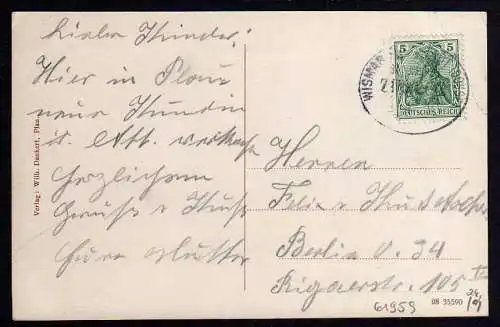 Liebe Kinder!
Hier in Plau
neue Kundin
Herzlichen
Gruß u Kuß
Eure Mutter
Verlag: Wilh. Dankert, Plau.
WISMAR
5 5
DEUTSCHES REICH
Herren
Felix u Kurt
Berlin O. 34
Rigaerstr. 105
61959
08 35590